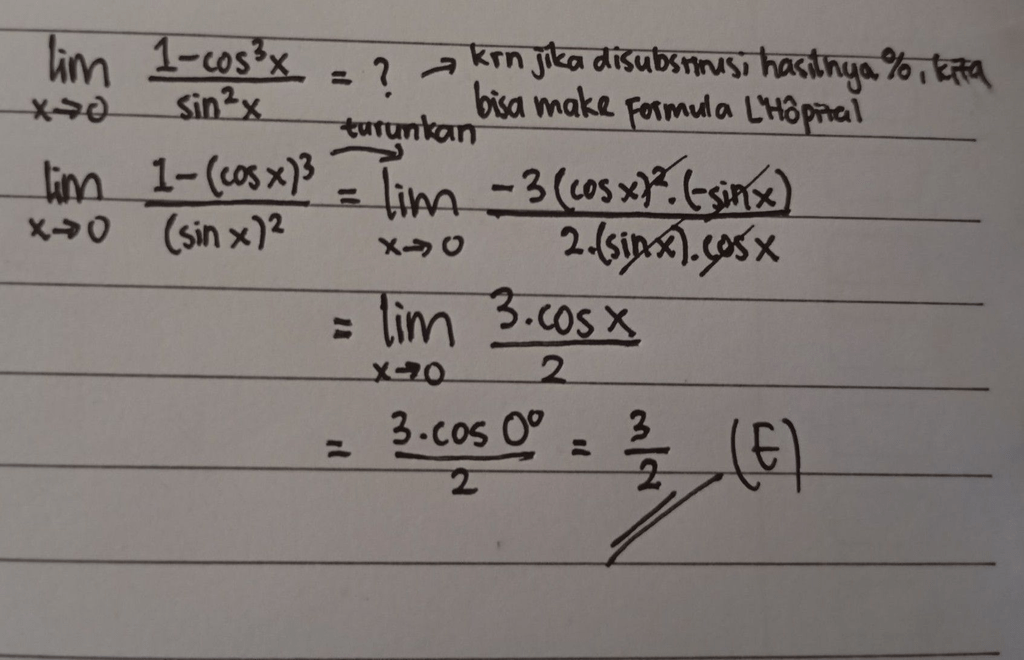 lim 1-cos³x / sin²x = ? → krn jika disubstitusi hasilnya 0/0, kita
x→0 bisa make Formula L'Hôpital
turunkan
lim 1-(cos x)³ / (sin x)² = lim -3(cos x)².(-sin x) / 2.(sin x).cos x
x→0 x→0
= lim 3.cos x / 2
x→0
= 3.cos 0° / 2 = 3/2 (E)